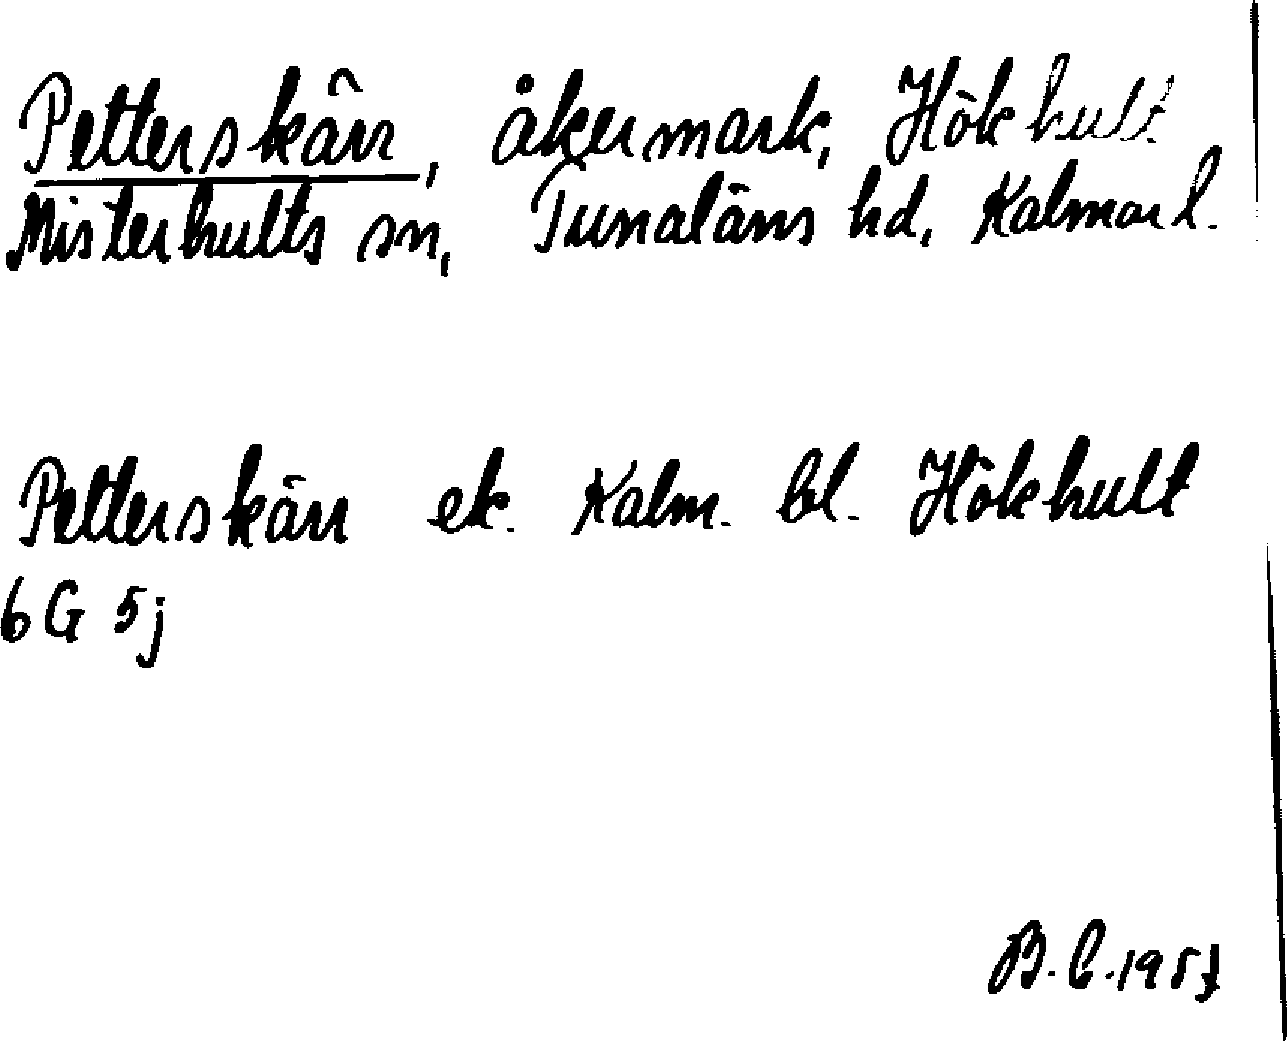 Petterskärr, åkermark, Hökhult
Misterhults sn, Tunaläns hd, Kalmar l.
Petterskärr ek. Kalm. bl. Hökhult
6G 5j
B.C.1957